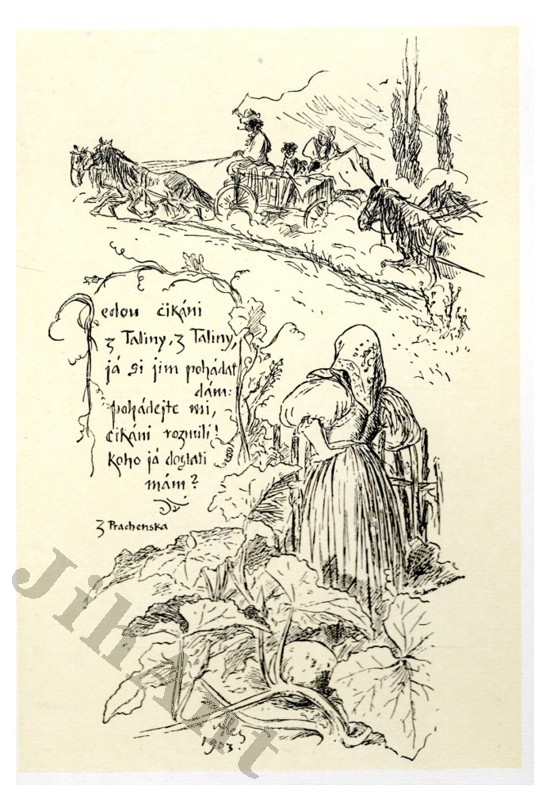 Jedou cikáni
z Taliny, z Taliny,
já si jim pohádat
dám:
pohádejte mi,
cikáni rozmilí!
koho já dostati
mám?
Z Prachenska
JihArt